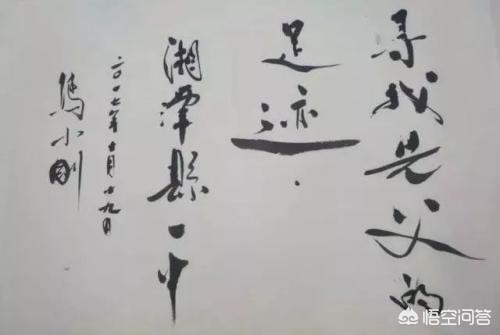 寻我先父的
足迹.
湘潭县一中
二〇一七年十月十九日
冯小刚
悟空问答